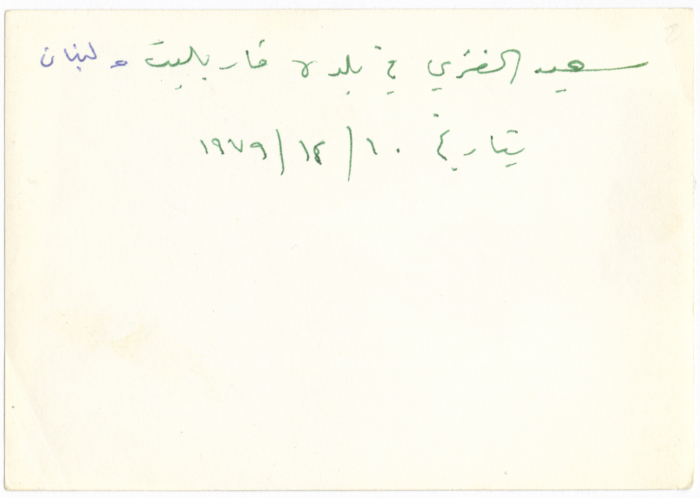 سعيد الغزي في بلدة فار بليت، لبنان
بتاريخ ١٠/١٢/١٩٧٩